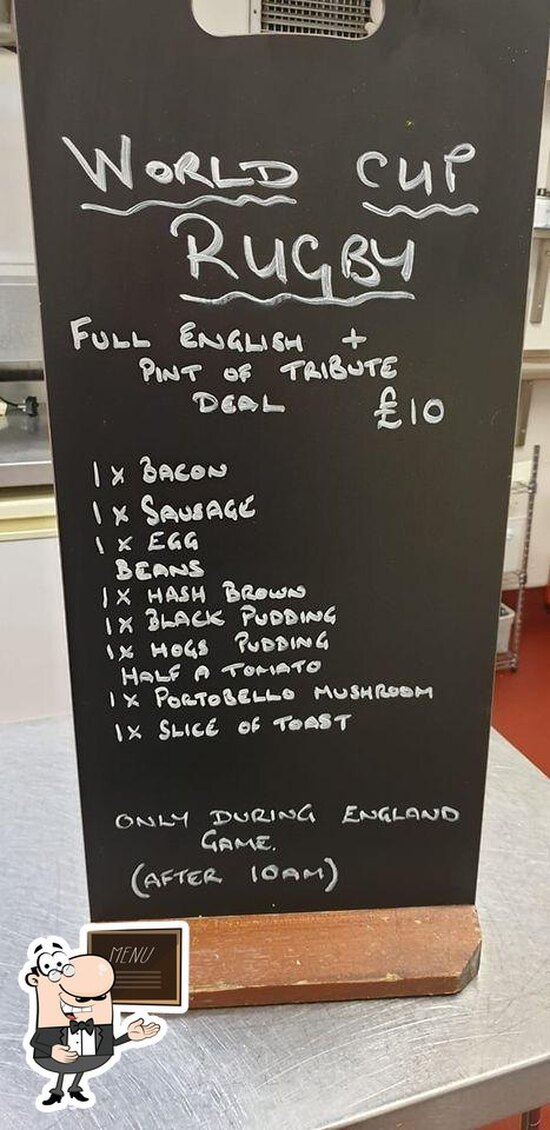 WORLD CUP
RUGBY
FULL ENGLISH +
PINT OF TRIBUTE
DEAL £10
1 X BACON
1 X SAUSAGE
1 X EGG
BEANS
1X HASH BROWN
1X BLACK PUDDING
1X HOGS PUDDING
HALF A TOMATO
1X PORTOBELLO MUSHROOM
1X SLICE OF TOAST
ONLY DURING ENGLAND
GAME.
(AFTER 10AM)
MENU